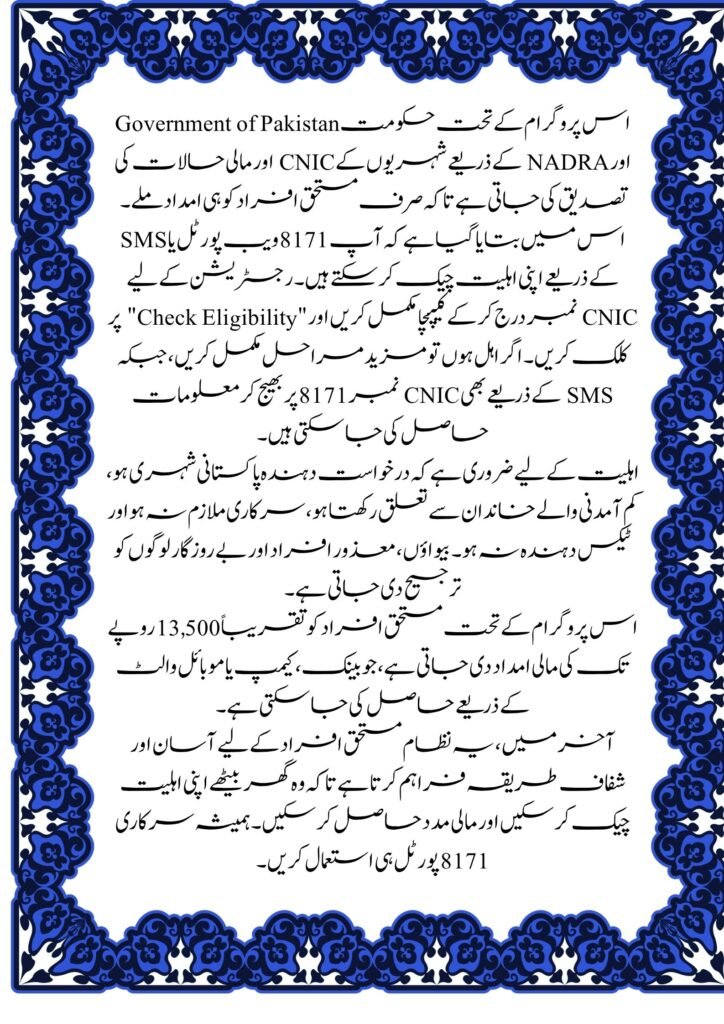 اس پروگرام کے تحت حکومت Government of Pakistan
اور NADRA کے ذریعے شہریوں کے CNIC اور مالی حالات کی
تصدیق کی جاتی ہے تاکہ صرف مستحق افراد کو ہی امداد ملے۔
اس میں بتایا گیا ہے کہ آپ 8171 ویب پورٹل یا SMS
کے ذریعے اپنی اہلیت چیک کر سکتے ہیں۔ رجسٹریشن کے لیے
CNIC نمبر درج کر کے کیپچا مکمل کریں اور "Check Eligibility" پر
کلک کریں۔ اگر اہل ہوں تو مزید مراحل مکمل کریں، جبکہ
SMS کے ذریعے بھی CNIC نمبر 8171 پر بھیج کر معلومات
حاصل کی جا سکتی ہیں۔
اہلیت کے لیے ضروری ہے کہ درخواست دہندہ پاکستانی شہری ہو،
کم آمدنی والے خاندان سے تعلق رکھتا ہو، سرکاری ملازم نہ ہو اور
ٹیکس دہندہ نہ ہو۔ بیواؤں، معذور افراد اور بے روزگار لوگوں کو
ترجیح دی جاتی ہے۔
اس پروگرام کے تحت مستحق افراد کو تقریباً 13,500 روپے
تک کی مالی امداد دی جاتی ہے، جو بینک، کیمپ یا موبائل والٹ
کے ذریعے حاصل کی جا سکتی ہے۔
آخر میں، یہ نظام مستحق افراد کے لیے آسان اور
شفاف طریقہ فراہم کرتا ہے تاکہ وہ گھر بیٹھے اپنی اہلیت
چیک کر سکیں اور مالی مدد حاصل کر سکیں۔ ہمیشہ سرکاری
8171 پورٹل ہی استعمال کریں۔